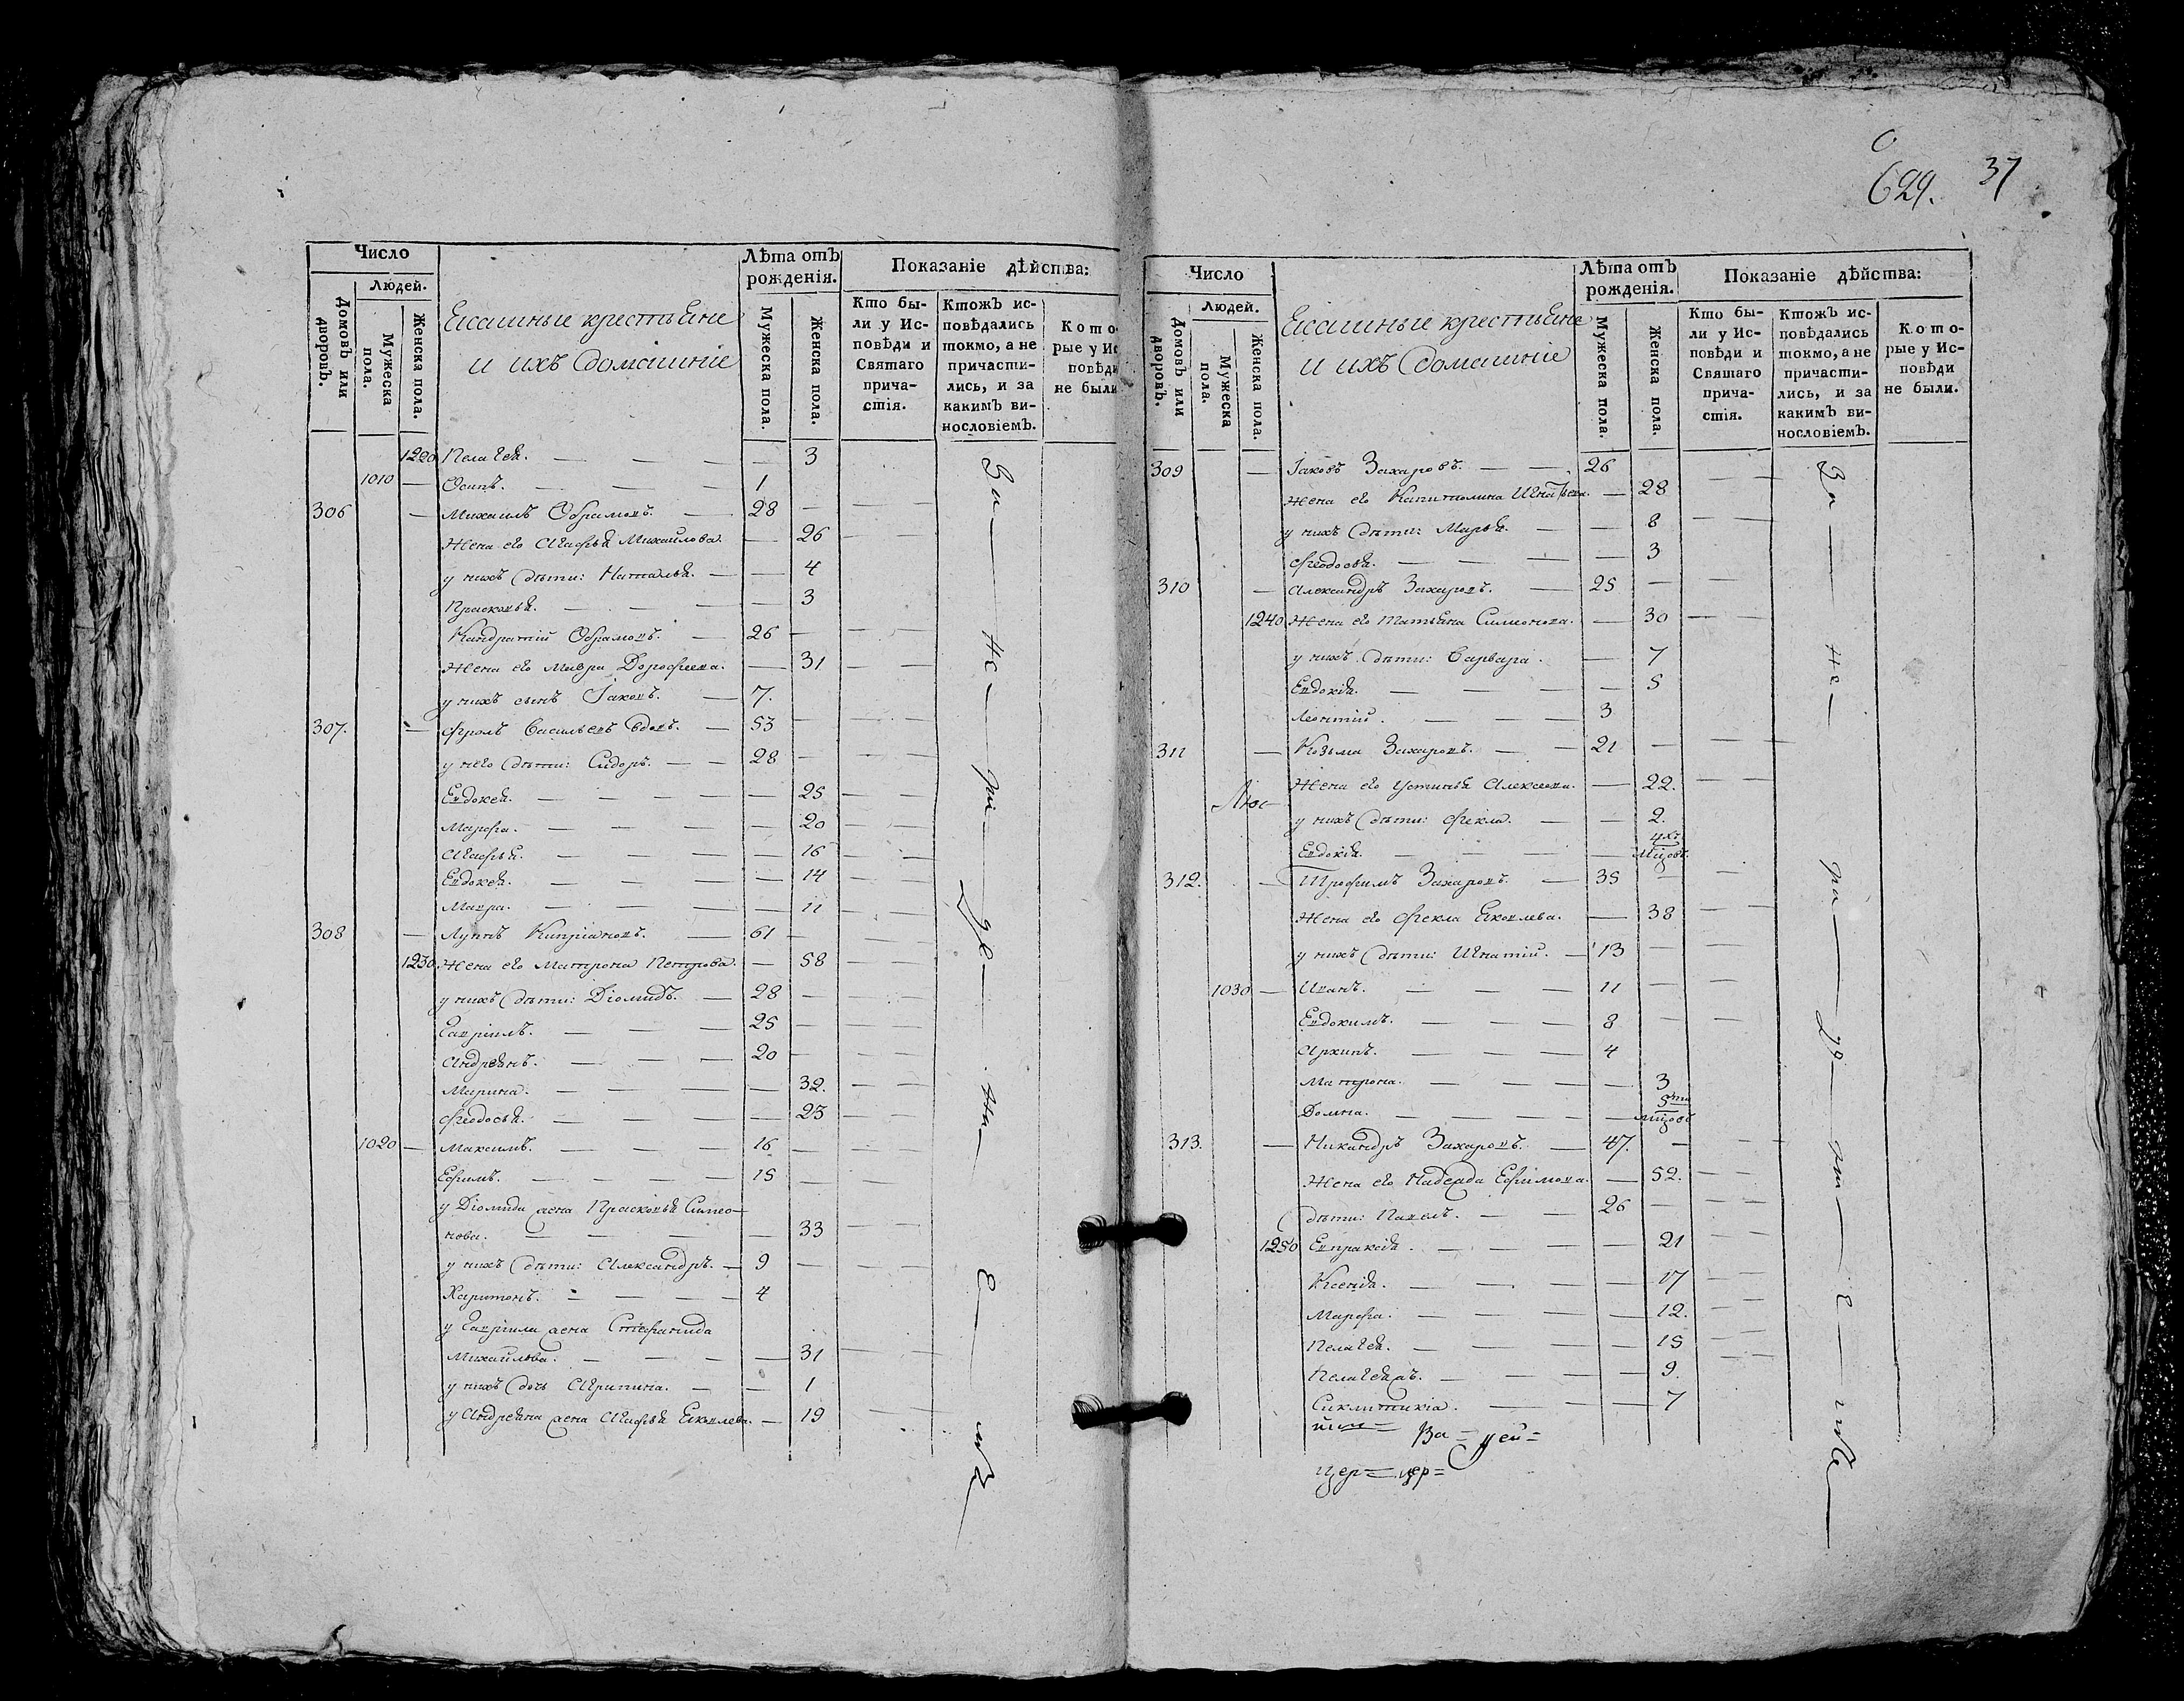 629. 37
Число
Людей.
Домовъ или дворовъ.
Мужеска пола.
Женска пола.
Ясашные крестьяне
и ихъ домашніе
Лѣта отъ рожденія.
Мужеска пола.
Женска пола.
Показаніе дѣйства:
Кто были у Исповѣди и Святаго причастія.
Ктожъ исповѣдались токмо, а не причастились, и за какимъ винословіемъ.
Которые у Исповѣди не были
1220 Пелагея. — — — — 3
1010 — Осипъ. — — — 1
306 — Михаилъ Обрамовъ. — 28 —
Жена его Агафья Михайлова. — 26
у нихъ дѣти: Наталья. — — 4
Прасковья. — — — — 3
Кандратій Обрамовъ. — 26 —
Жена его Мавра Дорофеева. — 31
у нихъ сынъ Іаковъ. — 7.
307. — Фролъ Васильевъ вдовъ. — 53 —
у него дѣти: Сидоръ. — — 28 —
Евдокея. — — — — — 25
Марфа. — — — — 20
Агафья. — — — — 16
Евдокея. — — — — 14
Мавра. — — — — 11
308 — Луппъ Кипріановъ. — 61 —
1230. Жена его Матрона Петрова. — 58
у нихъ дѣти: Діомидъ. — 28 —
Гавріилъ. — — — 25 —
Андреянъ. — — — 20 —
Марина. — — — — 32.
Феодосья. — — — — 23
1020 — Максимъ. — — — 16 —
Ефимъ. — — — — 15 —
у Діомида жена Прасковья Симео-
нова. — — — — — 33
у нихъ дѣти: Александръ. — 9 —
Харитонъ. — — — — 4
у Гавріила жена Стефанида
Михайлова. — — — — 31
у нихъ дочь Агрипина. — — 1
у Андреяна жена Агафья Яковлева. — 19
За — не — при —
Число
Людей.
Домовъ или дворовъ.
Мужеска пола.
Женска пола.
Ясашные крестьяне
и ихъ домашніе
Лѣта отъ рожденія.
Мужеска пола.
Женска пола.
Показаніе дѣйства:
Кто были у Исповѣди и Святаго причастія.
Ктожъ исповѣдались токмо, а не причастились, и за какимъ винословіемъ.
Которые у Исповѣди не были.
309 — Іаковъ Захаровъ. — — 26
Жена его Капитолина Игнатьева. — 28
у нихъ дѣти: Марья. — — 8
Феодосья. — — — — 3
310 — Александръ Захаровъ. — 25 —
1240 Жена его Татьяна Симонова. — 30
у нихъ дѣти: Варвара. — 7
Евдокія. — — — — 5
Леонтій. — — — 3
311 — Козьма Захаровъ. — — 21 —
Жена его Устинья Алексеева. — 22.
у нихъ дѣти: Фекла. — — 2.
Евдокія. — — — — 4хъ мцовъ.
312. — Трофимъ Захаровъ. — 35 —
Жена его Фекла Яковлева. — 38
у нихъ дѣти: Игнатій. — 13 —
1030 — Иванъ. — — — 11 —
Евдокимъ. — — — 8
Архипъ. — — — 4
Матрона. — — — — 3
Домна. — — — — 5ти мцовъ
313. — Никандръ Захаровъ. — 47. —
Жена его Надежда Ефимова. — 52.
дѣти: Павелъ. — — 26 —
1250 Евпраксія. — — — — 21
Ксенія. — — — — 17
Марфа. — — — — 12.
Пелагея. — — — — 15
— 9.
Сиклитикіа. — — — 7
За — не —